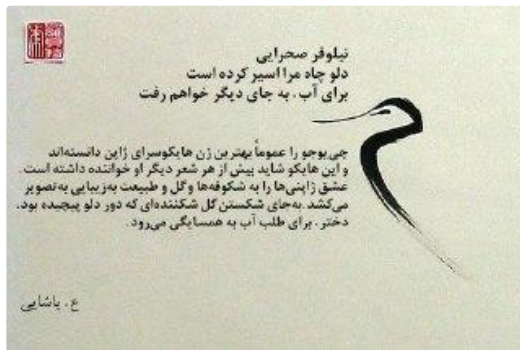 نیلوفر صحرایی
دلو چاه مرا اسیر کرده است
برای آب، به جای دیگر خواهم رفت
چی‌یوجو را عموماً بهترین زن هایکوسرای ژاپن دانسته‌اند
و این هایکو شاید بیش از هر شعر دیگر او خواننده داشته است.
عشق ژاپنی‌ها را به شکوفه‌ها و گل و طبیعت به‌زیبایی به‌تصویر
می‌کشد. به‌جای شکستن گل شکننده‌ای که دور دلو پیچیده بود،
دختر، برای طلب آب به همسایگی می‌رود.
ع. پاشایی